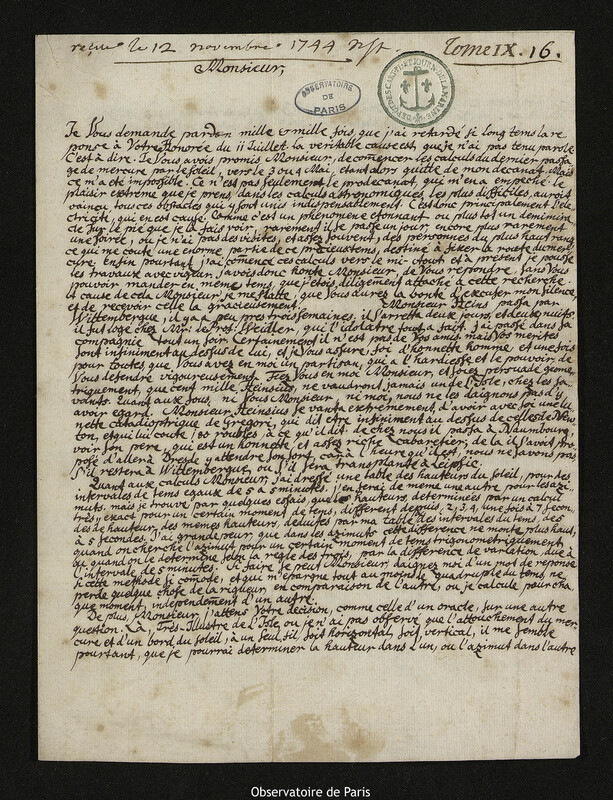 reçue le 12 novembre 1744 nst. Tome IX. 16.
Monsieur,
OBSERVATOIRE
DE
PARIS
Je Vous demande pardon mille & mille fois, que j'ai retardé si long tems la re
ponce à Votre Honorée du 11 Juillet. la veritable cause est que je n'ai pas tenu parole
C'est à dire. Je Vous avois promis Monsieur, de comencer les calculs du dernier passa
ge de mercure par le soleil, vers le 3 ou 4 Mai, etant alors quitte de mon decanat. Mais
ce m'a eté impossible. Ce n'est pas seulement le prodecanat, qui m'en a empeché. le
plaisir extreme que je prens, dans les calculs astronomiques les plus difficiles, auroit
vaincu tous ces obstacles qui y sont unis indispensablement. C'est donc principalement l'ele
ctricité, qui en est cause. Comme c'est un phénomene etonnant ou plus tot un demi mira
cle sur le pié que je la fais voir, rarement il se passe un jour encore plus rarement
une soirée, ou je n'ai pas des visites, et assez souvent, des personnes du plus haut rang
ce qui me coute une enorme partie de ce précieux tems, destiné à fixer la route du mer
cure. enfin pourtant j'ai comencé ces calculs vers le mi-Aout et à present je pousse
les travaux avec vigueur. j'avois donc honte Monsieur, de Vous repondre, sans Vous
pouvoir mander en, meme tems, que j'etois, diligement attaché à cette recherche
et cause de cela Monsieur, je me flatte, que Vous aurez la bonté d'excuser mon silence,
et de recevoir celle la gracieusement. Monsieur Heins passa par
Wittembergue, il y a à peu pres trois semaines, il s'arretta deux jours, et deux nuits
il fut logé chez Mr. le Prof. Weidler, qui l'idolatre tout a fait. j'ai passé dans sa
compagnie tout un soir Certainement il n'est pas de Vos amis mais Vos merites
sont infiniment au dessus de lui, et je Vous assure, foi d'honnette homme, et une fois
pour toutes que Vous avez en moi un partisan, qui a l'hardiesse et le pouvoir de
Vous defendre vigoureusement. Fiez Vous en moi, Monsieur, et soiez persuadé geome
triquement, que cent mille Heinsius ne vaudront jamais un de l'Isle, chez les sa
vants. Quant aux sous, ni Vous Monsieur, ni moi, nous ne les daignons pas d'y
avoir egard. Monsieur Heinsius se vanta extremement d'avoir avec soi une lu
nette catadioptrique de Gregori, qui dit etre infiniment au dessus de celles de New
ton, et qui lui coute 180 roubles, à ce qu'il dit. de chez nous il passa à Naumbourg
voir son père, qui est un honnette, et assez riche Cabaretier, de la il s'avoit pro
posé d'aller à Dresde y attendre son sort, car à l'heure qu'il est, nous ne savons pas
s'il restera à Wittembergue, ou s'il sera transplanté à Leipsic.
Quant aux calculs Monsieur, j'ai dressé une table des hauteurs du soleil, pour des
intervales de tems egaux de 5 à 5 minutes, j'en ferai de meme une autre pour les azi
muts. mais je trouve par quelques essais, que les hauteurs, determinées par un calcul
très exact pour un certain moment de tems, different depuis, 2, 3, 4, une fois à 7 secon
des de hauteur, des memes hauteurs, deduites par ma table des intervales du tems, de 5
à 5 secondes. J'ai grand peur, que dans les azimuts cette difference ne monte plus haut,
quand on cherche l'azimut pour un certain moment de tems trigonometriquement,
ou quand on le determine selon la regle des trois, par la difference de variation, due à
l'intervale de 5 minutes. Si faire se peut Monsieur, daignez moi d'un mot de reponse
si cette methode si comode, et qui m'epargne tout au moins le quadruple du tems, ne
perde quelque chose de la rigueur, en comparaison de l'autre, ou je calcule pour cha
que moment, independemment d'un autre.
De plus, Monsieur j'attens Votre decision, comme celle d'un oracle, sur une autre
question. La, Très-Illustre de l'Isle, ou je n'ai pas observé que l'attouchement du mer
cure et d'un bord du soleil, à un seul fil, soit horizontal, soit vertical, il me semble
pourtant, que je pourrai determiner la hauteur dans l'un, ou l'azimut dans l'autre
Observatoire de Paris